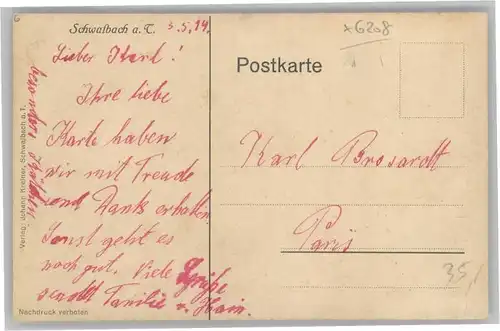 Schwalbach a. T.
3.5.14.
Lieber Karl!
Ihre liebe
Karte haben
wir mit Freude
und Dank erhalten
Sonst geht es
noch gut. Viele Grüße
sendet Familie v. Hain.
Verlag: Johann Kreiner, Schwalbach a. T.
Nachdruck verboten
Postkarte
Karl Brosardt
Paris
+6208
35,-